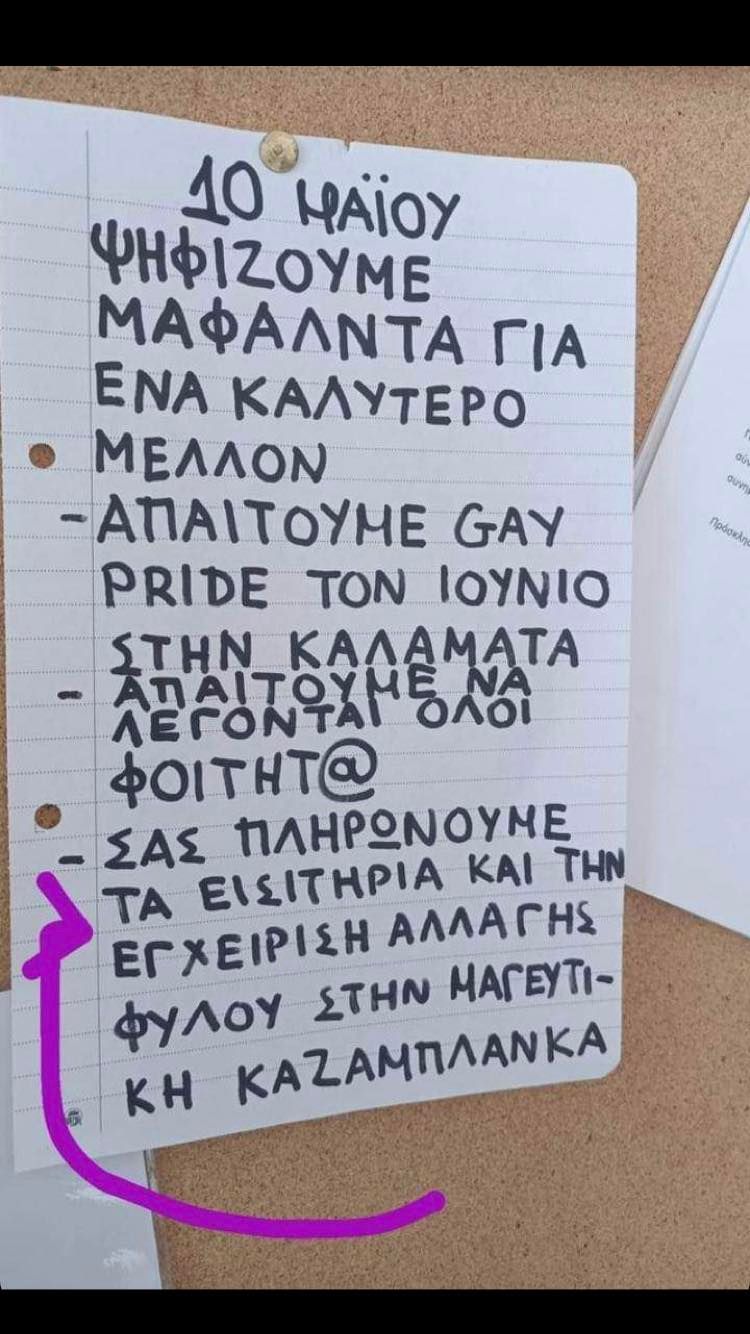 10 ΜΑΪΟΥ
ΨΗΦΙΖΟΥΜΕ
ΜΑΦΑΛΝΤΑ ΓΙΑ
ΕΝΑ ΚΑΛΥΤΕΡΟ
ΜΕΛΛΟΝ
- ΑΠΑΙΤΟΥΜΕ GAY
PRIDE ΤΟΝ ΙΟΥΝΙΟ
ΣΤΗΝ ΚΑΛΑΜΑΤΑ
- ΑΠΑΙΤΟΥΜΕ ΝΑ
ΛΕΓΟΝΤΑΙ ΟΛΟΙ
ΦΟΙΤΗΤ@
- ΣΑΣ ΠΛΗΡΩΝΟΥΜΕ
ΤΑ ΕΙΣΙΤΗΡΙΑ ΚΑΙ ΤΗΝ
ΕΓΧΕΙΡΙΣΗ ΑΛΛΑΓΗΣ
ΦΥΛΟΥ ΣΤΗΝ ΜΑΓΕΥΤΙ-
ΚΗ ΚΑΖΑΜΠΛΑΝΚΑ